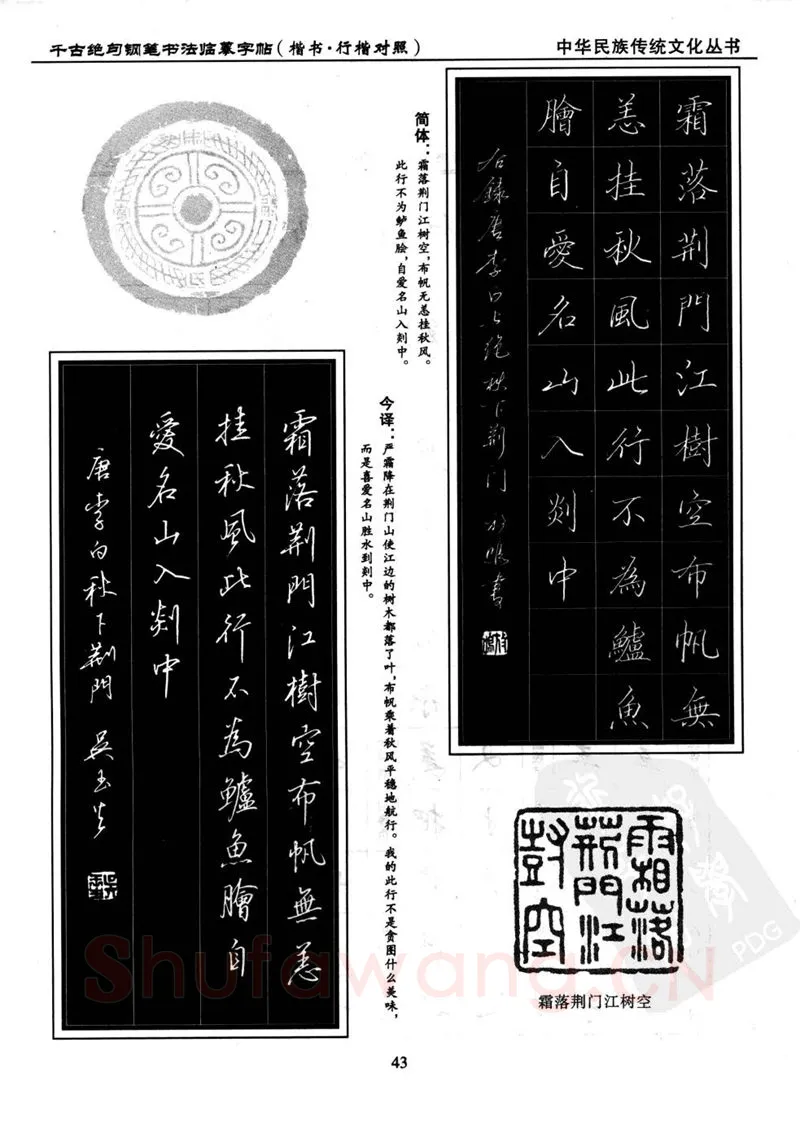 千古绝句钢笔书法临摹字帖(楷书·行楷对照)
中华民族传统文化丛书
霜落荆門江樹空布帆無
恙挂秋風此行不為鱸魚
膾自愛名山入剡中
右錄唐李白七绝秋下荆门
书
简体:霜落荆门江树空,布帆无恙挂秋风。
此行不为鲈鱼脍,自爱名山入剡中。
今译:严霜降在荆门山使江边的树木都落了叶,布帆乘着秋风平稳地航行。我的此行不是贪图什么美味,
而是喜爱名山胜水到剡中。
霜落荆門江樹空布帆無恙
挂秋風此行不為鱸魚膾自
愛名山入剡中
唐李白秋下荆門 吴玉生
霜落
荊門江
樹空
霜落荆门江树空
Shufawang.CN
PDG
43